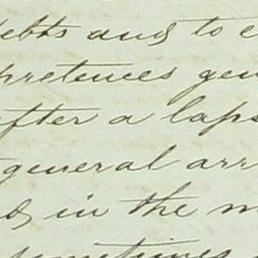 debts and to
pretences gen
after a laps
general arr
in the m
sometimes